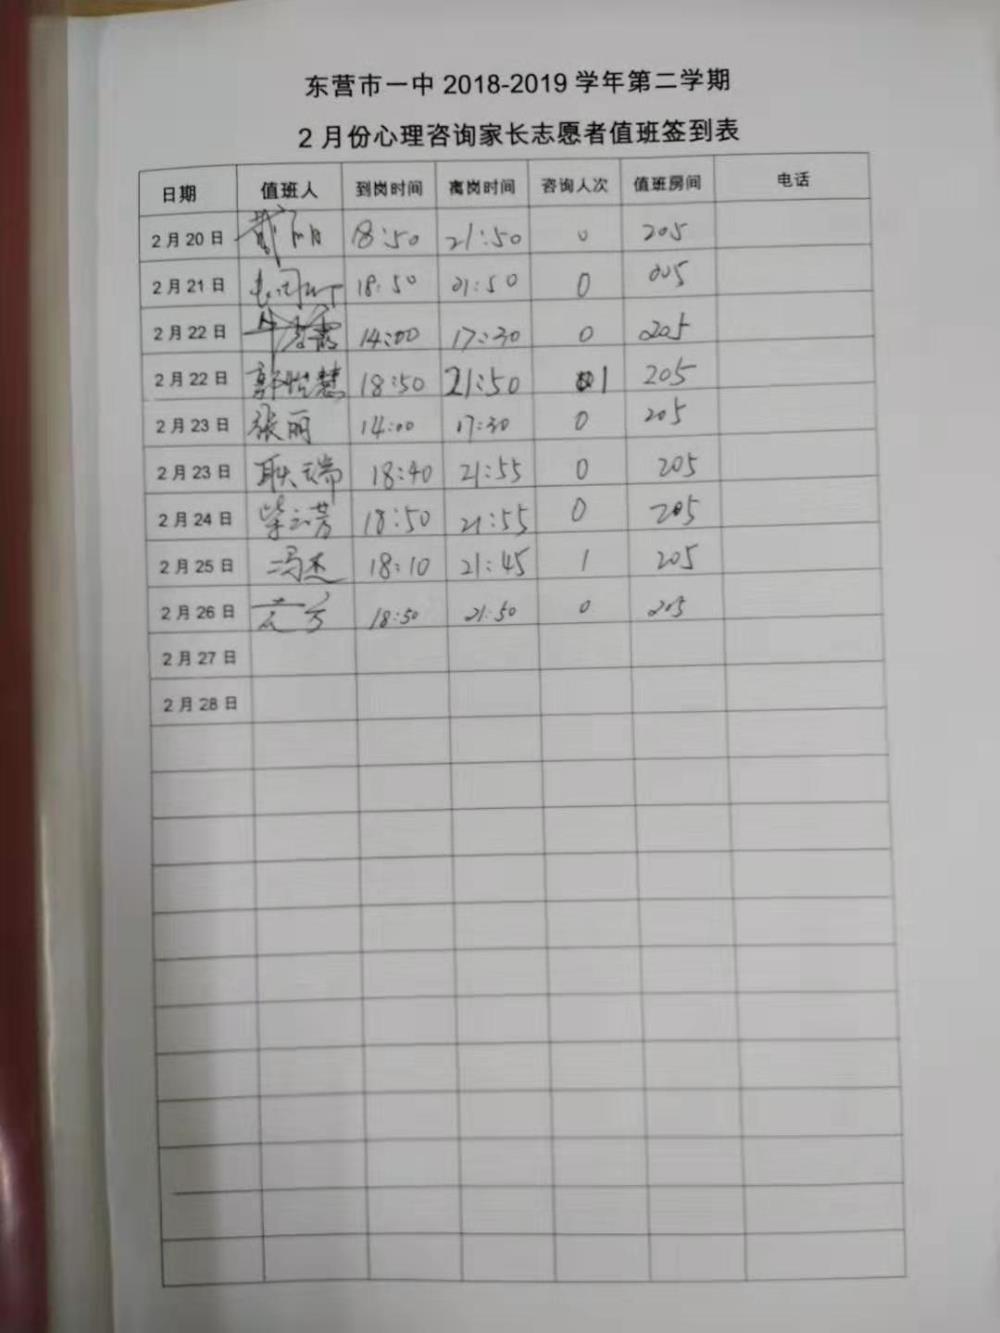 东营市一中 2018-2019 学年第二学期
2 月份心理咨询家长志愿者值班签到表
日期 值班人 到岗时间 离岗时间 咨询人次 值班房间 电话
2 月 20 日 18:50 21:50 0 205
2 月 21 日 18:50 21:50 0 205
2 月 22 日 14:00 17:30 0 205
2 月 22 日 18:50 21:50 1 205
2 月 23 日 张丽 14:00 17:30 0 205
2 月 23 日 耿瑞 18:40 21:55 0 205
2 月 24 日 柴云芳 18:50 21:55 0 205
2 月 25 日 冯杰 18:10 21:45 1 205
2 月 26 日 18:50 21:50 0 205
2 月 27 日
2 月 28 日